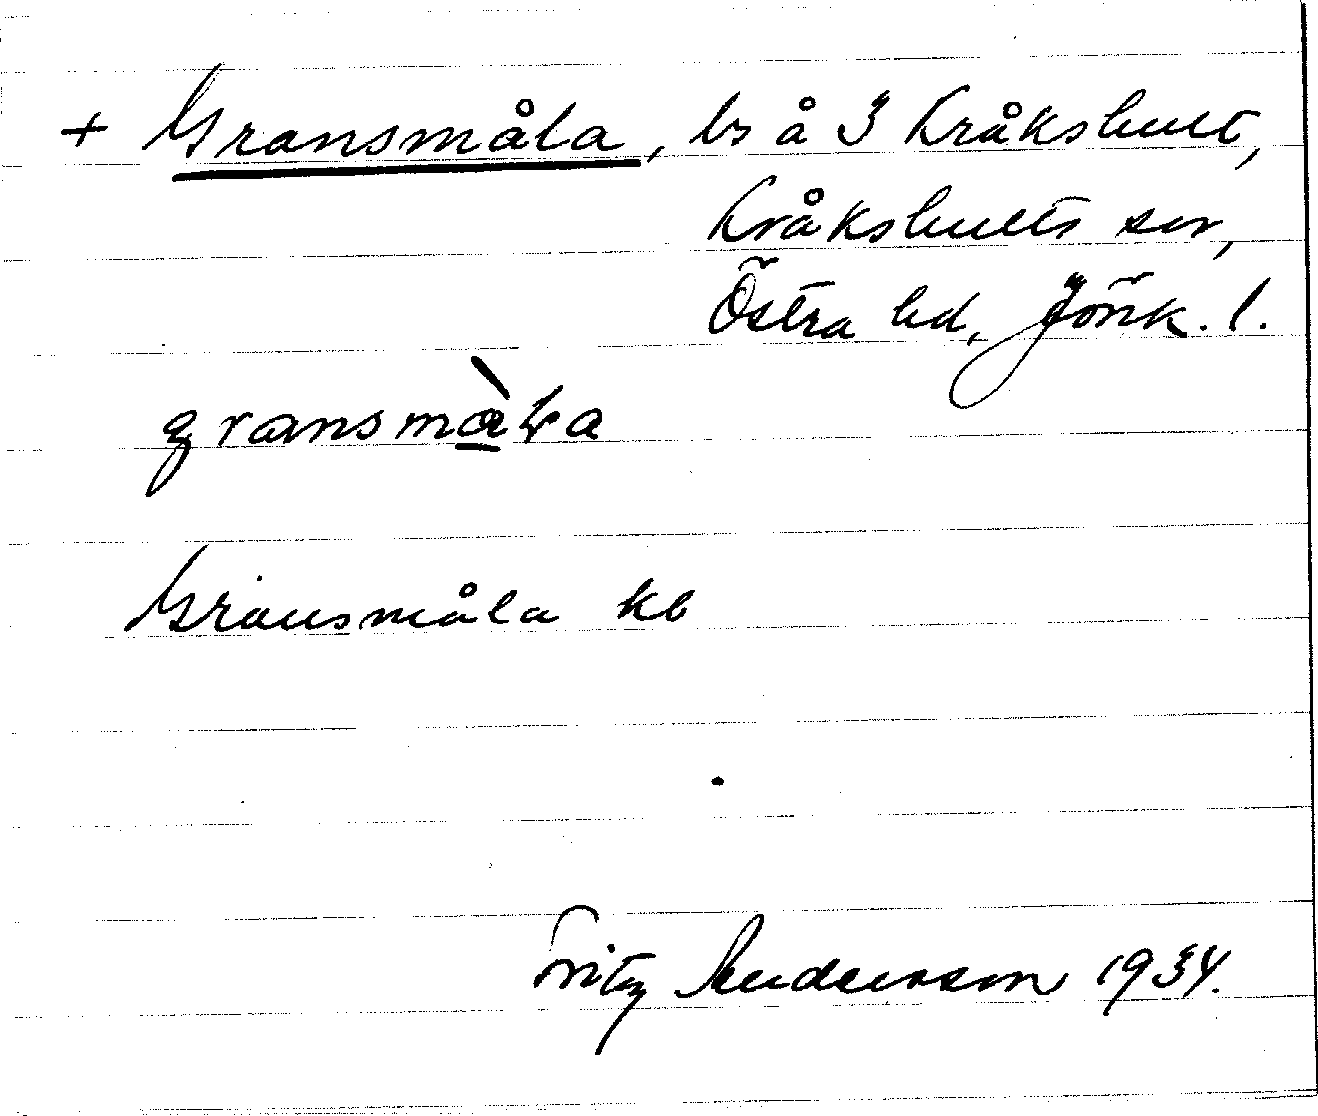 + Gransmåla, ls å 3 Kråkshult,
Kråkshults sn,
Östra hd, Jönk. l.
gransmàła
Gransmåla kb
Fritz Anderson 1934.